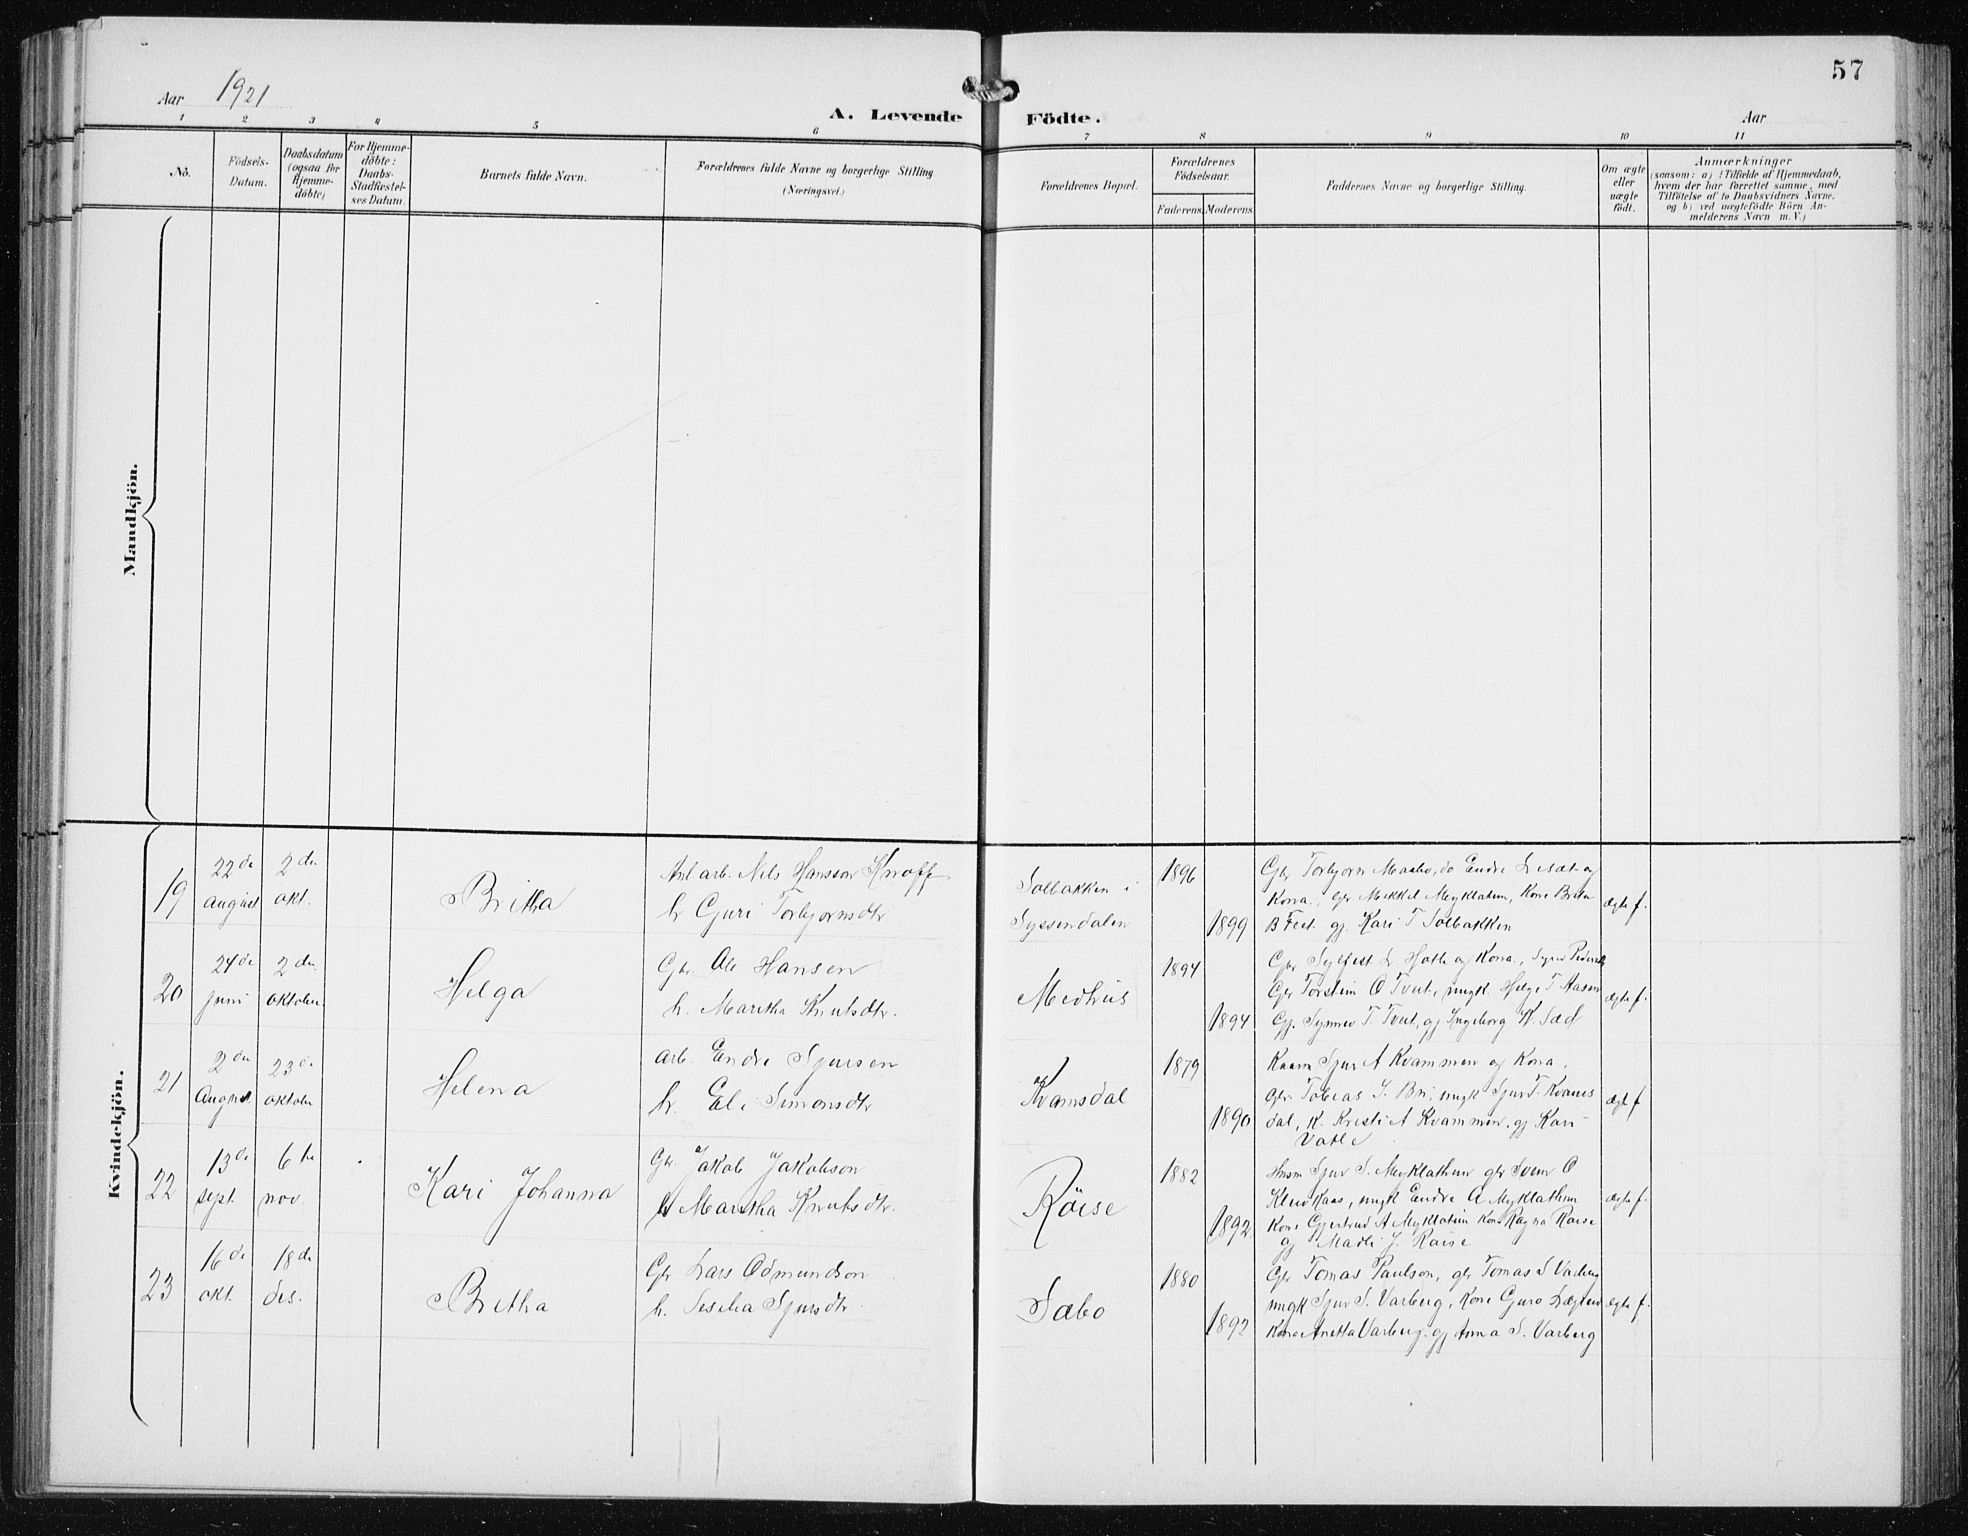 57
Aar 1921
A. Levende Födte.
Aar
1 2 3 4 5 6 7 8 9 10 11
No.
Födsels-
Datum.
Daabsdatum
(ogsaa for
Hjemme-
döbte)
For Hjemme-
döbte:
Daabs-
Stadfæstel-
ses Datum.
Barnets fulde Navn.
Forældrenes fulde Navne og borgerlige Stilling
(Næringsvei.)
Forældrenes Bopæl.
Forældrenes
Födselsaar.
Faderens Moderens
Faddernes Navne og borgerlige Stilling.
Om ægte
eller
uægte
födt.
Anmærkninger
(saasom: a) i Tilfælde af Hjemmedaab,
hvem der har forrettet samme, med
Tilföielse af to Daabsvidners Navne,
og b) ved uægtefödte Börn An-
melderens Navn m. V.)
Mandkjön.
Kvindekjön.
19
22de
august
2den
okt.
Britha
Anl arb. Nils Hansson Knoff
h Guri Torbjørnsdtr
Solbakken i
Syssendalen
1896
1899
Gbr Torbjørn Maabø, do Endre Lisæt og
Kona, gbr Mikkel Myklatun, Kone Brita
B Fest. gj. Kari T Solbakken
ægte f.
20
24de
juni
2den
oktober
Helga
Gbr. Ole Hansen
h. Maritha Knutsdtr.
Medhus
1894
1894
Gbr Sylfest L Hotle og Kona,
Gbr Torstein O Tveit, ungk. Helge T Aasen
Gj. Synnev T. Tveit, gj Ingeborg K. Sæd
ægte f.
21
2den
August
23de
oktober
Helena
arb. Endre Sjursen
h. Eli Simonsdtr
Kvamsdal
1879
1890
Kaarm Sjur A Kvammen og Kona,
Gbr Tobias S. Bu, ungk Sjur T. Kvams
dal, K. Kristi A Kvammen, gj Kari
Vatle
ægte f
22
13de
sept.
6te
nov.
Kari Johanna
Gbr. Jakob Jakobson
h Maritha Knutsdtr.
Röise
1882
1892.
Husm Sjur S. Myklathun gbr Svein O
Kleivkaas, ungk Endre A Myklathun
Kone Gjertrud A Myklatun Kone Ragna Röise
gj Madli J. Röise
ægte f.
23
16de
okt.
18de
des.
Britha
Gbr Lars Odmundson
h. Sesilia Sjursdtr.
Sæbo
1880
1892
Gbr Tomas Paulson, gbr Tomas S Varberg
ungk Sjur S. Varberg, Kone Guro
Kone Anetta Varberg. gj Anna S. Varberg
ægte f.